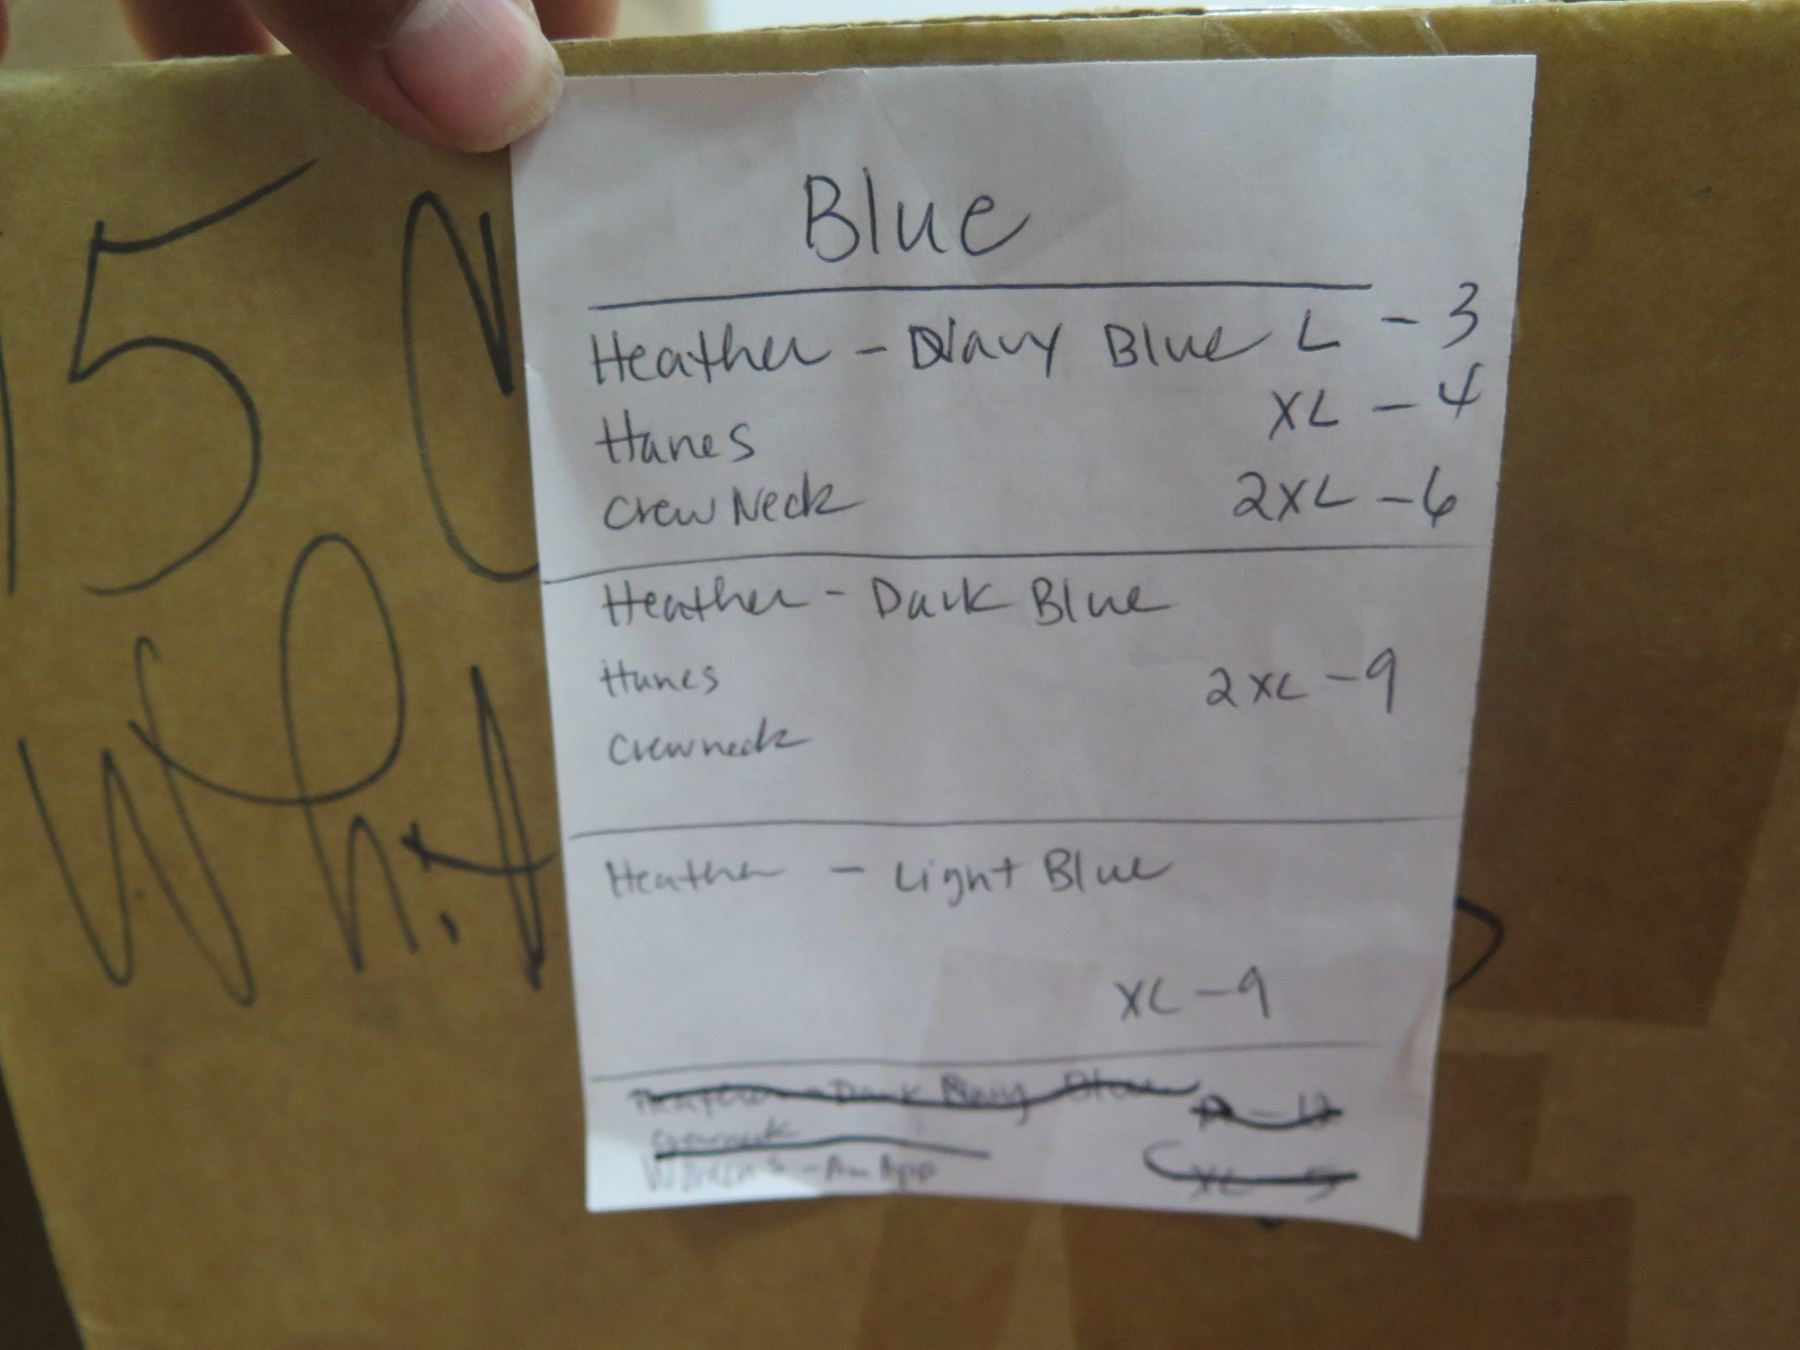 Blue
Heather - Navy Blue L - 3
XL - 4
Hanes
Crew Neck 2XL - 6
Heather - Dark Blue
Hanes 2XL - 9
Crewneck
Heather - Light Blue
XL - 9
Heather - Dark Navy Blue
Crewneck
Women's - Am App
XL - 5
15